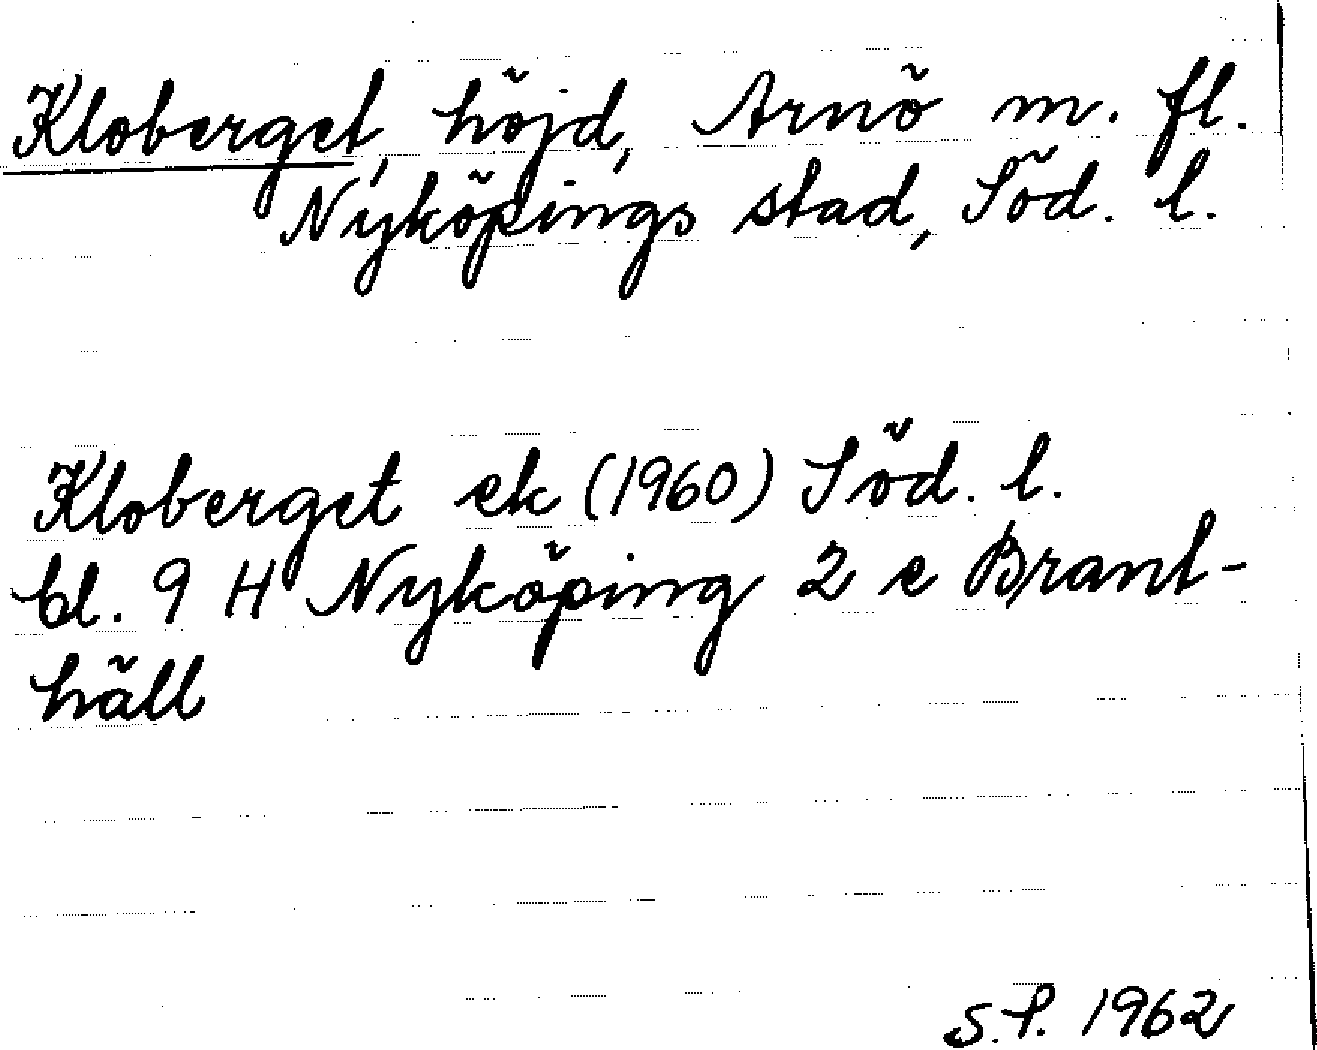 Kloberget, höjd, Arnö m. fl.
Nyköpings stad, Söd. l.
Kloberget ek (1960) Söd. l.
bl. 9 H Nyköping 2 e Brant-
häll
S.P. 1962